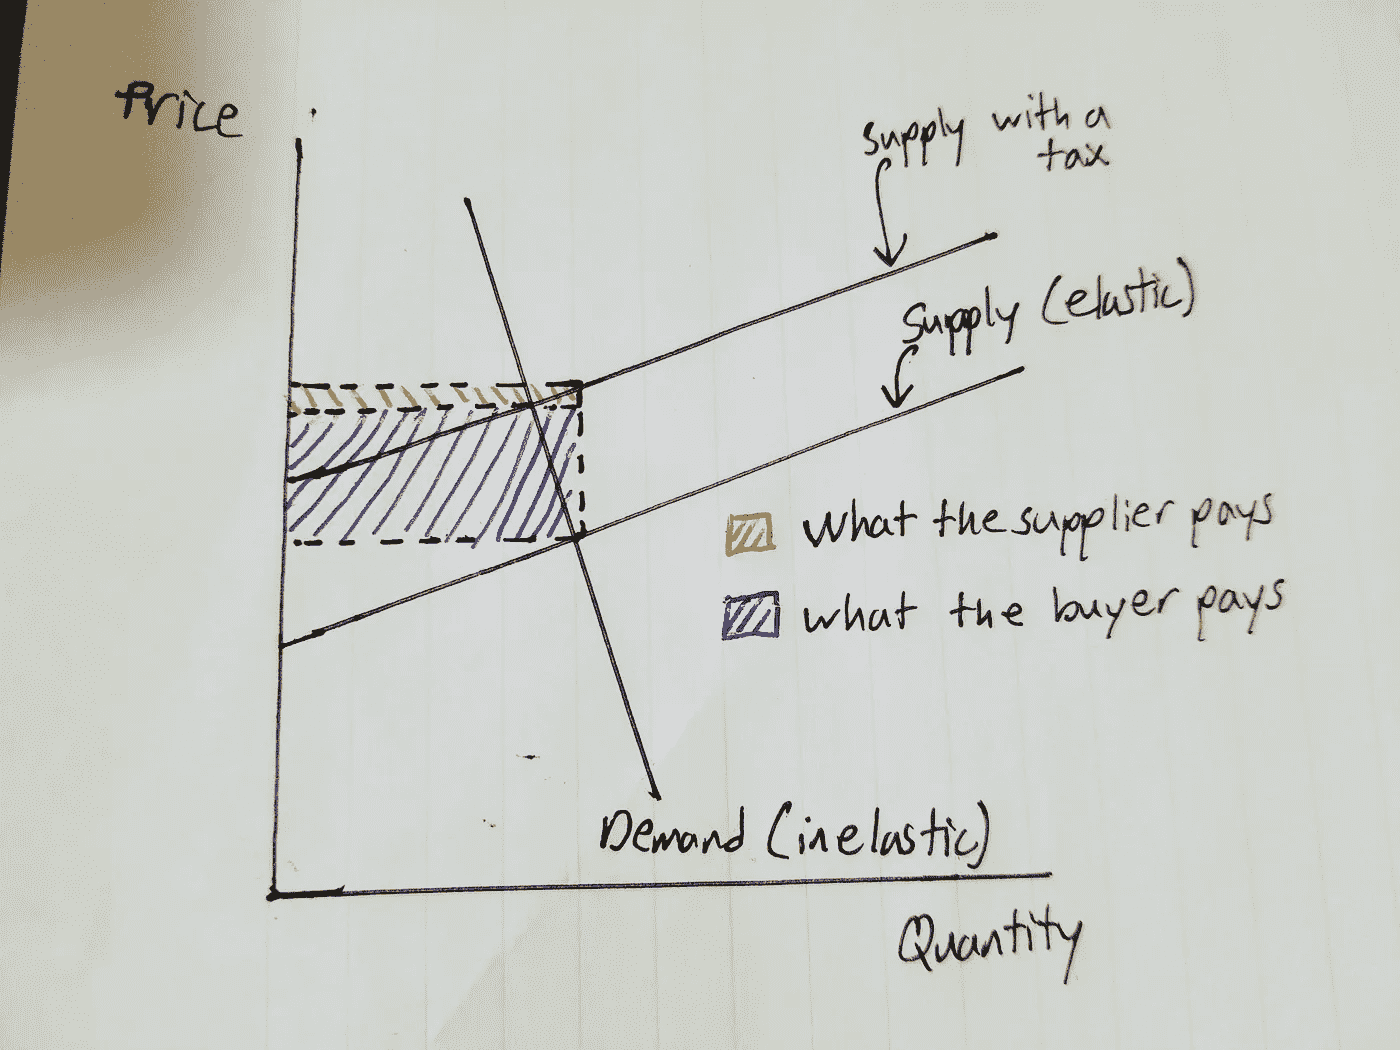 Price
supply with a
tax
Supply (elastic)
What the supplier pays
what the buyer pays
Demand (inelastic)
Quantity